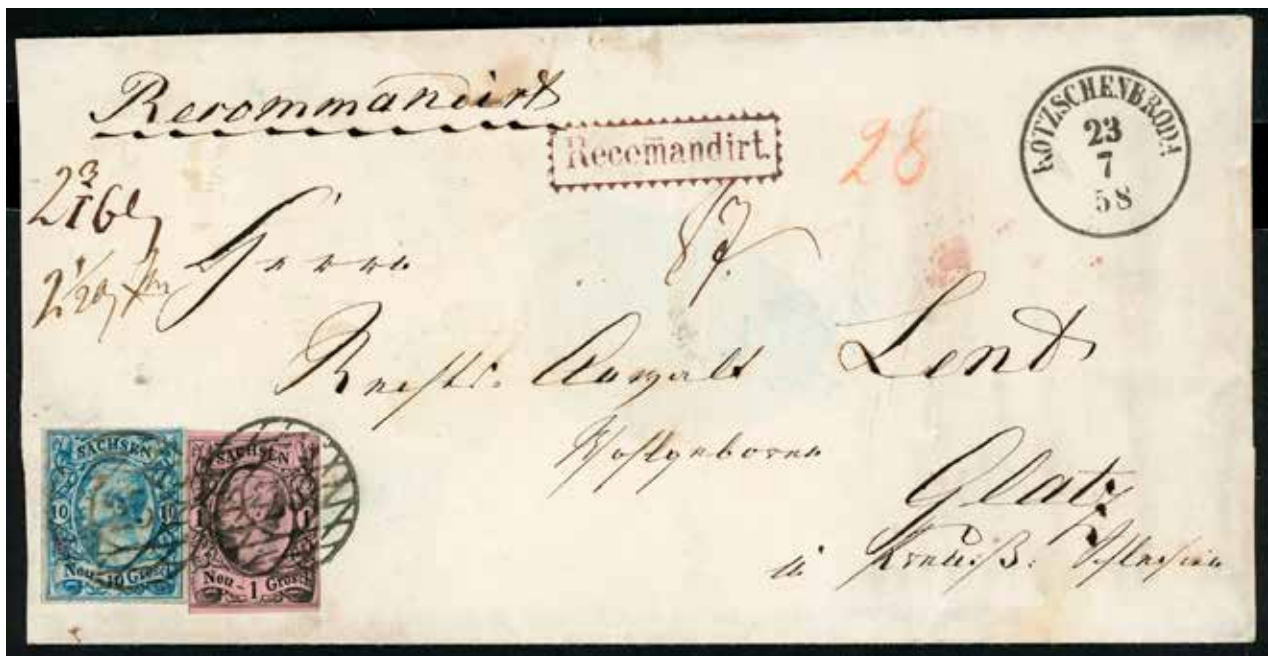 Recommandirt
Recom̄andirt.
28
KÖTZSCHENBRODA
23
7
58
Herrn
Rechts-Anwalt Lent
Wohlgeboren
Glatz
in Preuß: Schlesien
SACHSEN
10 10
Neu-10 Grosch.
SACHSEN
1 1
Neu-1 Grosch.